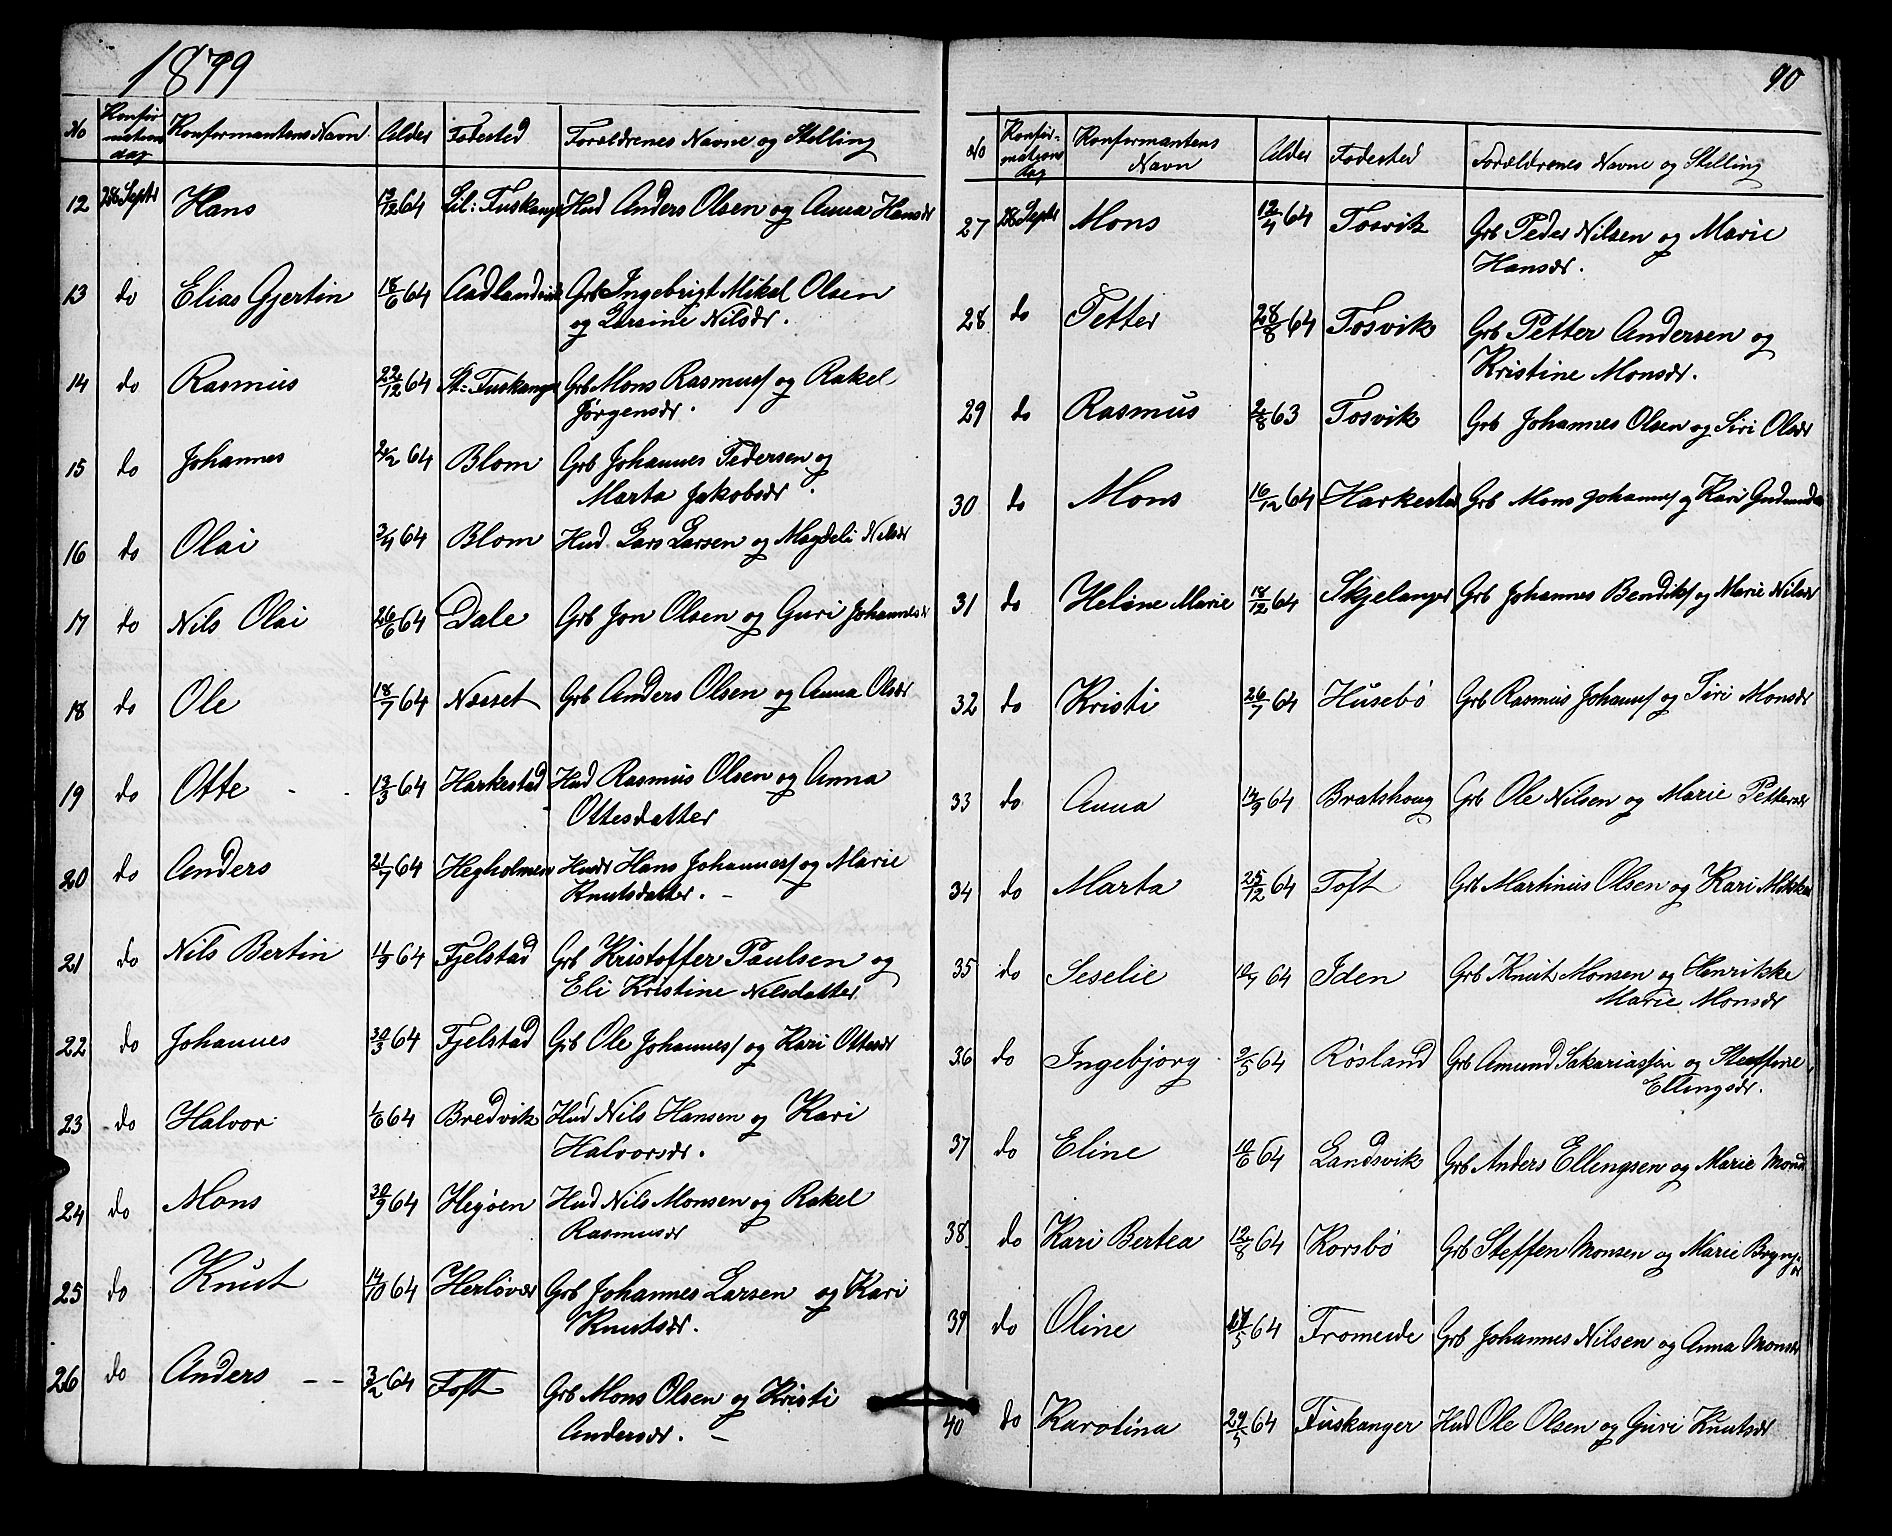 1879
No Konfirmations dag Konfirmantens Navn. Alder Fødested Forældrenes Navne og Stilling
12 28 Septr Hans 64 Lil: Fuskanger Hud Anders Olsen og Anna Hansdr
13 do Elias Gjertin 18/6 64 Aadlandsvik Grb Ingebrigt Mikal Olsen
og Larsine Nilsdr.
14 do Rasmus 22/12 64 St: Fuskanger Grb Mons Rasmus/ og Rakel
Jørgensdr.
15 do Johannes 64 Blom Grb Johannes Pedersen og
Marta Jakobsdr.
16 do Olai 3/4 64 Blom Hud Lars Larsen og Magdeli Nilsdr
17 do Nils Olai 26/6 64 Dale Grb Jon Olsen og Guri Johannesdr
18 do Ole 18/7 64 Næsset Grb Anders Olsen og Anna Olsdr
19 do Otte - - 13/3 64 Harkestad Hud Rasmus Olsen og Anna
Ottesdatter
20 do Anders 21/7 64 Hegholmen Husdr Hans Johannes/ og Marie
Knutsdatter. -
21 do Nils Bertin 11/9 64 Fjelstad Grb Kristoffer Paulsen og
Eli Kristine Nilsdatter
22 do Johannes 30/3 64 Fjelstad Grb Ole Johannes/ og Kari Ottesdr
23 do Halvor 1/6 64 Bredvik Hud Nils Hansen og Kari
Halvorsdr.
24 do Mons 30/9 64 Hegøen Hud Nils Monsen og Rakel
Rasmusdr
25 do Knut 14/10 64 Herløvær Grb Johannes Larsen og Kari
Knutsdr.
26 do Anders - - 3/2 64 Toft Grb Mons Olsen og Kristi
Andersdr. -
90
No Konfirmations dag Konfirmantens Navn Alder Fødested Forældrenes Navne og Stilling
27 28 Septr Mons 12/4 64 Tosvik Grb Peder Nilsen og Marie
Hansdr.
28 do Petter 28/8 64 Tosvik Grb Petter Andersen og
Kristine Monsdr.
29 do Rasmus 2/8 63 Tosvik Grb Johannes Olsen og Siri Olsdr
30 do Mons 16/12 64 Harkestad Grb Mons Johannes/ og Kari
31 do Heline Marie 18/12 64 Skjelanger Grb Johannes Bendiks/ og Marie Nilsdr
32 do Kristi 26/7 64 Husebø Grb Rasmus Johannes/ og Siri Monsdr
33 do Anna 14/9 64 Bratshoug Grb Ole Nilsen og Marie Pettersdr
34 do Marta 25/12 64 Toft Grb Martinus Olsen og Kari
35 do Seselie 64 Iden Grb Knut Monsen og Henrikke
Marie Monsdr
36 do Ingebjørg 2/5 64 Røsland Grb Amund Sakarias/en og Steffine
Ellingsdr.
37 do Eline 10/6 64 Landsvik Grb Anders Ellingsen og Marie Monsd
38 do Kari Bertea 12/8 64 Korsbø Grb Steffen Monsen og Marie
39 do Oline 17/5 64 Tromeide Grb Johannes Nilsen og Anna Monsdr
40 do Karolina 29/5 64 Fuskanger Hud Ole Olsen og Guri Knutsdr